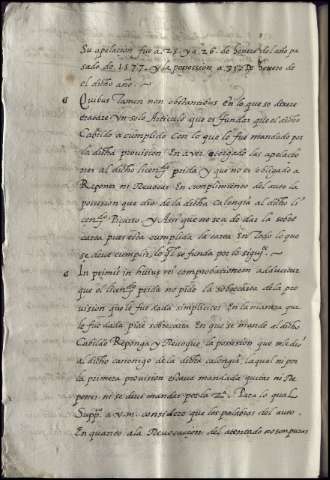 Su apelacion fue a 25. y a 26. de henero del año pa
sado de 1577. y la posession a 31. de henero de
el dicho año.
Quibus tamen non obstantibus En lo que se deve
tratar Un solo Articulo que es fundar que el dicho
Cabildo a cumplido con lo que le fue mandado por
la dicha provision En aver otorgado las apelacio
nes al dicho licen.do prida y que no es obligado a
Reponer ni Revocar En cumplimiento del auto la
posesion que dio de la dicha calongia al dicho li
cen.do y Assi que no se a de dar la sobre
carta pues esta cumplida la carta En todo lo que
se deve cumplir, lo q.l se funda por lo sigui.te
In primis in huius rei comprobationem adducitur
que el licen.do prida no pide la sobrecarta de la pro
vision que le fue dada simpliciter En la manera que
le fue dada pide sobrecarta En que se mande al dicho
Cabildo Reponga y Revoque la posesion que
al dicho canonigo de la dicha calongia, la qual ni por
la primera provision estava mandada quitar ni Re
poner ni se deve mandar por la 2.a Para lo qual
Supp.co a v. m. considere que las palabras del auto.
En quanto a la Revocacion del atentado